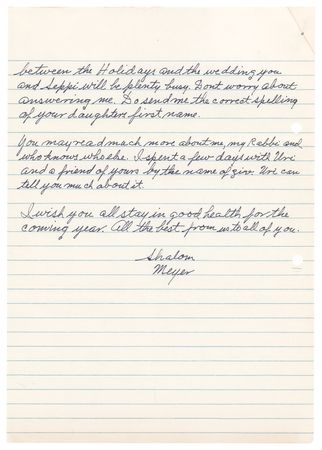 between the Holidays and the wedding you
and Seppi will be plenty busy. Dont worry about
answering me. Do send me the correct spelling
of your daughters first name.
You may read much more about me, my Rabbi and
who knows who else. I spent a few days with Uri
and a friend of yours by the name of Giv. Uri can
tell you much about it.
I wish you all stay in good health for the
coming year. All the best from us to all of you.
Shalom
Meyer